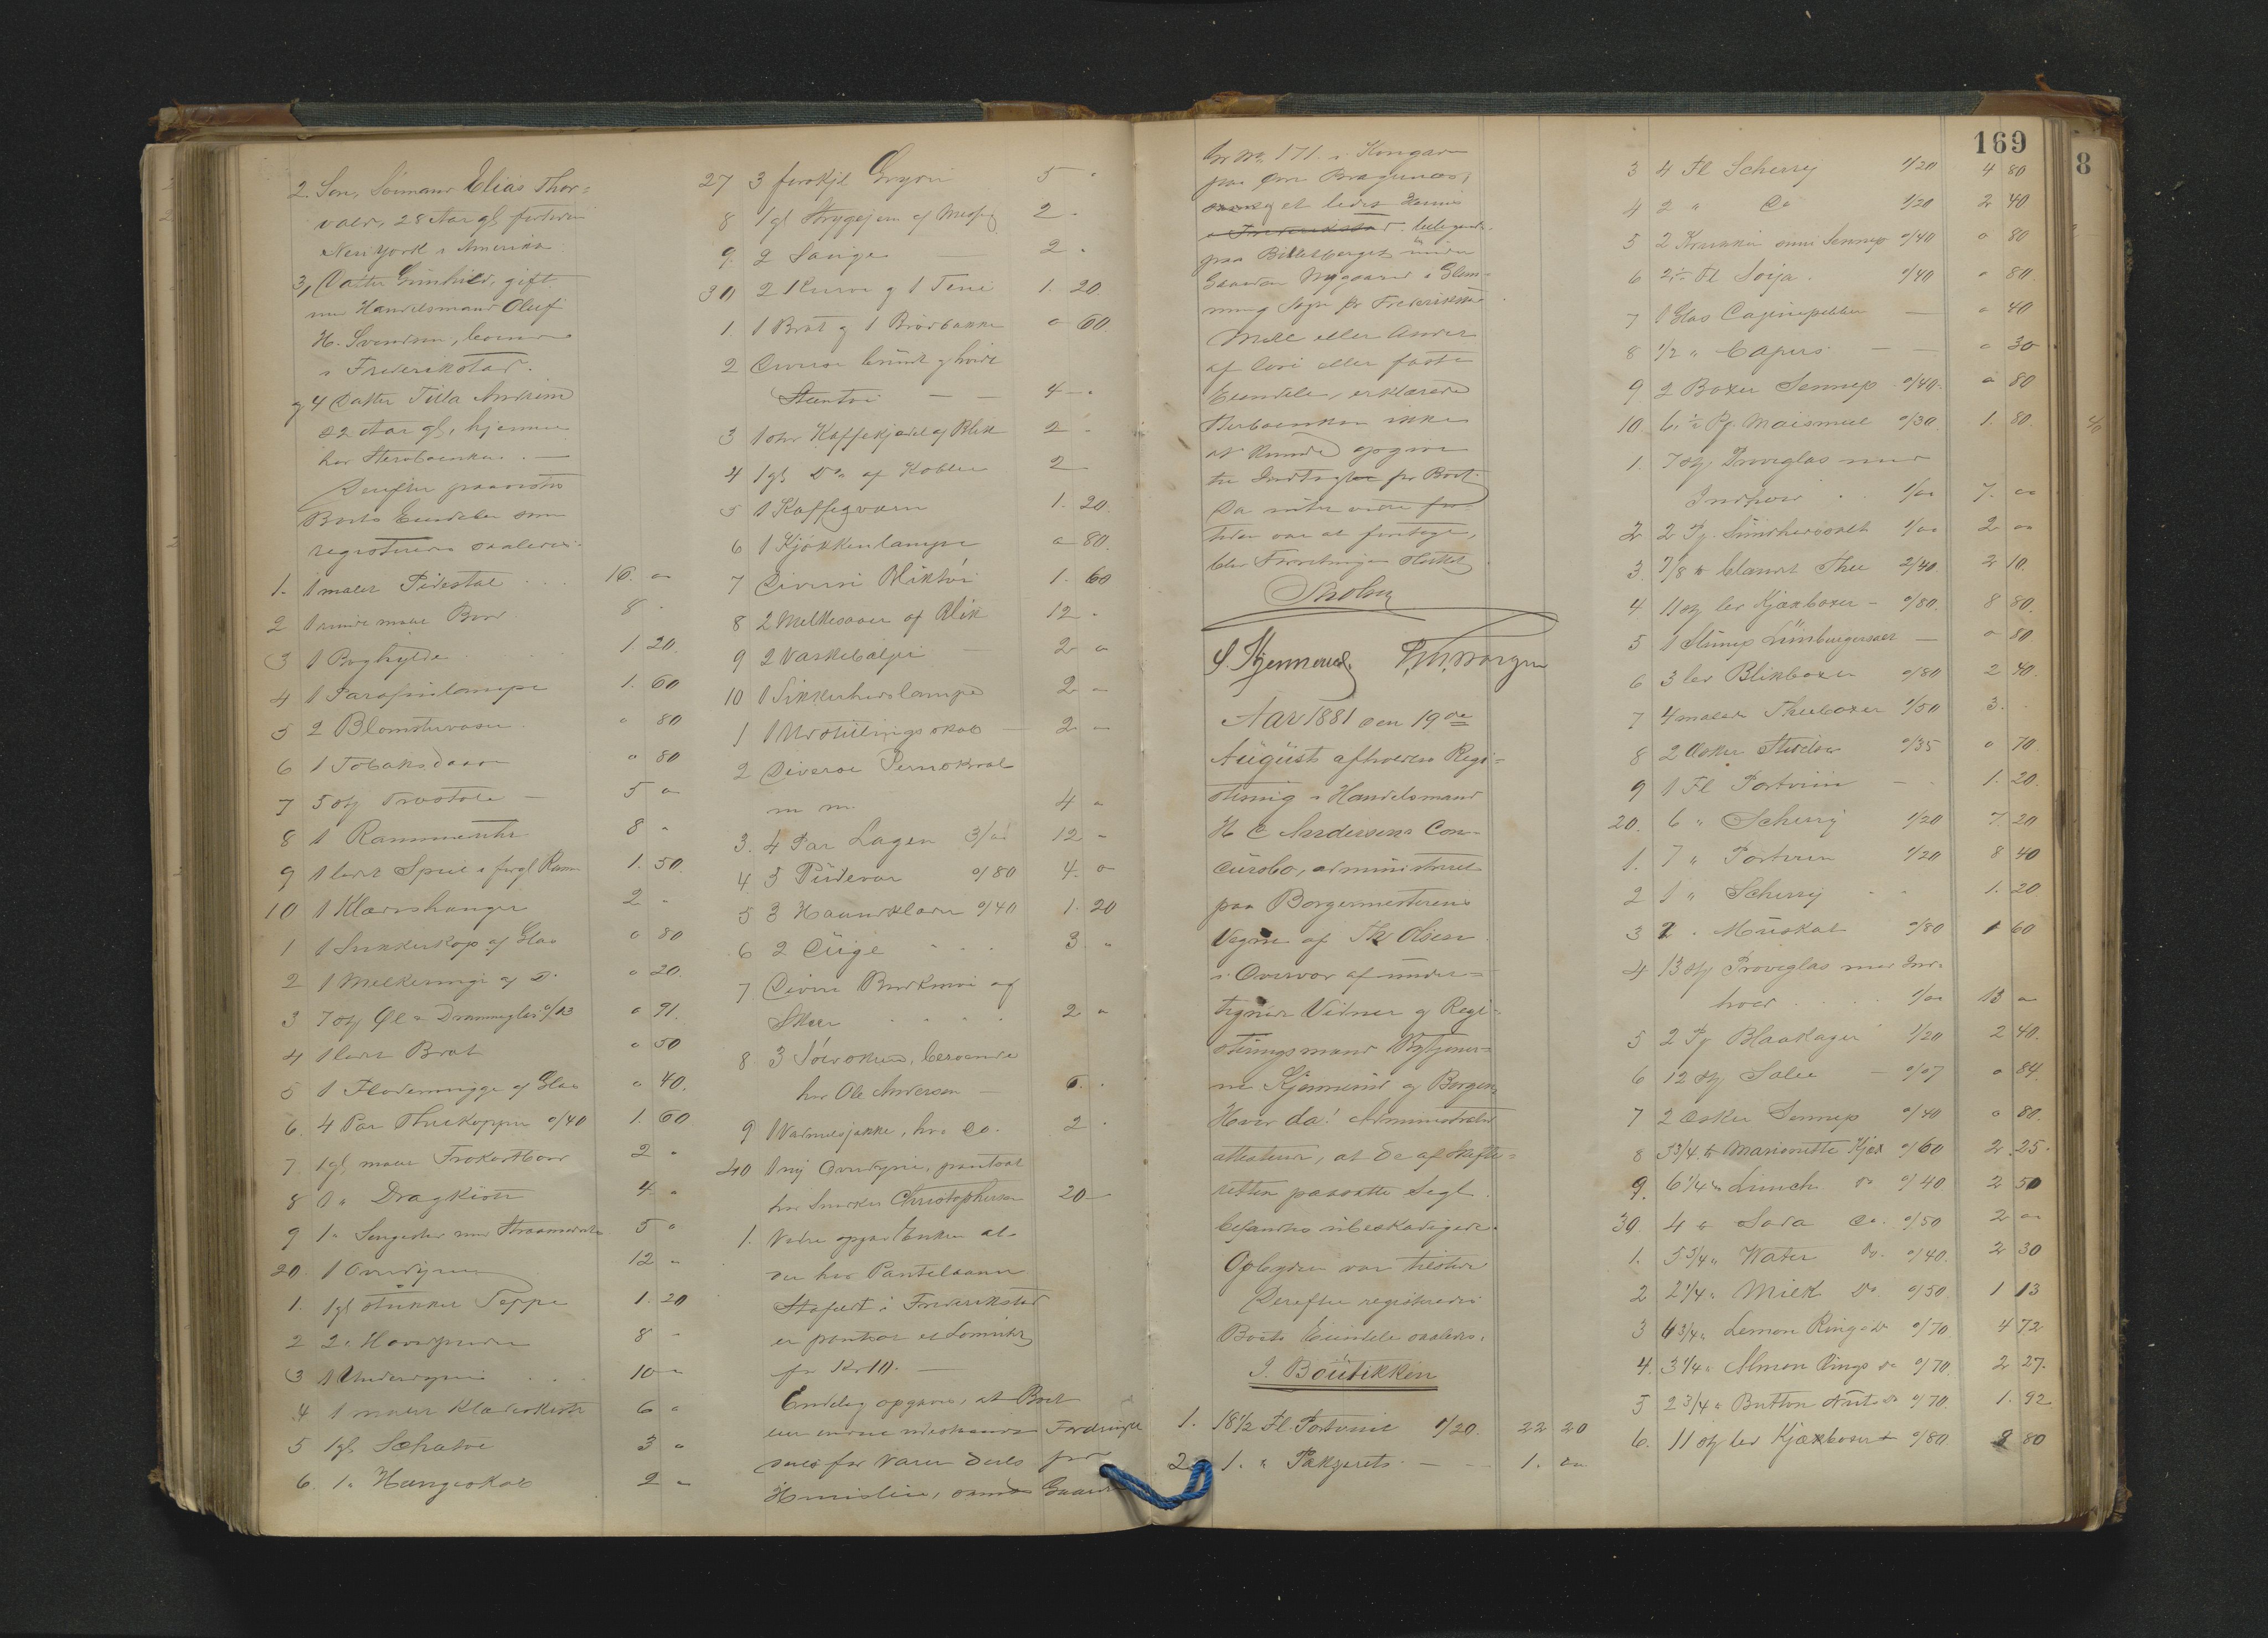 2. Søn, Sømand Elias Thor=
vald, 28 Aar gl,
New York i Amerika
3, Datter Gunhild, gift
med Handelsmand Oluf
H. Svendsen, boende
i Frederikstad.
og 4 Datter Tilla
22 Aar gl, hjemme
hos Sterboenken. —
Derefter
Boets Eiendele som
registreredes saaledes:
1. 1 malet Pidestal 16. "
2 1 rundt malet Bord 8 "
3 1 Boghylde 1. 20.
4 1 Parafinlampe 1. 60
5 2 Blomstervaser " 80
6 1 Tobaksdaase " 80
7 5 stk Træstole — 5 "
8 1 Rammeuhr 8 "
9 1 lidet Speil i forgl Ramme 1. 50.
10 1 Klædeshænger 2 "
1 1 Sukkerkop af Glas " 80
2 1 Melkemugge af Do " 20.
3 7 stk Øl & Dramglas o/13 " 91.
4 1 lidet Bret " 50
5 1 Flødemugge af Glas " 40.
6. 4 Par Thekopper o/40 1. 60
7. 1 gl, malet Frokostbord 2 "
8 1 " Dragkiste 4 "
9 1 " Sengested med Straamadrats 5 "
20. 1 Overdyne 12 "
1. 1 gl stukket Teppe 1. 20
2 2 " Hovedpuder 8 "
3 1 Underdyne 10 "
4 1 malet Klædeskiste 6 "
5 1 gl Schatol 3 "
6. 1 " Hængeskab 2 "
27 3 forskjl Gryder 5 "
8 1 gl Strygejern af Messing 2 "
9. 2 Senge — 2 "
30 2 Kurve og 1 Tine 1. 20.
1 1 Bret og 1 Brødbakke " 60.
2 Diverse brunt og hvidt
Stentøi — — 4 — "
3 1 stor Kaffekjedel af Blik 2 "
4 1 gl Do af Kobber 2
5 1 Kaffeqværn 1. 20.
6 1 Kjøkkenlampe " 80.
7 Diverse Bliktøi 1. 60
8 2 Melkespand af Blik 12 "
9 2 Vaskebaljer — 2 "
10 1 Sikkerhedslampe 2 "
1 1 Udstillingsskab — 2 —
2 Diverse
m m. 4 "
3. 4 Par Lagen 3/" 12 "
4 5 Pudevar o/80 4. "
5 3 Haandklæder o/40 1. 20
6 2 Duge 3. "
7 Diverse
2 "
8. 3 Sølvskeer, beroende
hos Ole Andersen — 6. "
9 1 Vadmelsjakke, hos Do. 2 "
40 1 ny Overdyne, pantsat
hos Snedker Christophersen 20 —
1. Videre opgav Enken at
der hos Pantelaaner
Stafedt i Frederikstad
er pantsat et Lommeuhr
for Kr 10. —
Endelig opgaves, at Boet
eier endnu udestaaende Fordringer
dels for Varer dels for
Huusleie, samt Gaarden
Gr No 171. i Kongens
paa Øvre Bragernes,
samt et lidet Huus
i Frederikstad. beliggende
paa under
Gaarden Nygaard i Glem-
minge Sogn pr Frederikstad
Mere eller Andet
af Løst eller fast
Eiendele, erklærede
Sterboenken ikke
at kunde opgive
til Indtægt for Boet.
Da intet videre
var at foretage,
blev Forretningen sluttet
S. Kjennerud. P. M. Borgen
Aar 1881 den 19de
August afholdtes Regi=
strering i Handelsmand
H C Andersens Con=
cursbo, administreret
paa Borgermesterens
Vegne af Th Olsen
i Overvær af under=
tegnede Vidner og Regi=
streringsmænd
ne Kjennerud og Borgen.
Hvor da! Administrator
attesterer, at de af Skifte=
retten paasatte Segl
befandtes ubeskadigede.
Opbyder var tilstede
Derefter registreredes
Boets Eiendele saaledes.
I. Boutikken
1. 18 1/2 Fl. Portviin 1/20. 22 20
2. 1. " — 1. "
169
3 4 Fl Scherry 1/20 4 80
4 2 " Do 1/20 2 40
5 2 Krukker Sennep o/40 " 80
6 2 Fl Soija. o/40 " 80
7 1 Glas Cajennepebber — " 40
8 1/2 " Capers — — " 30
9 2 Boxer Sennep o/40. " 80
10 6 Pf Maismeel o/30 1. 80.
1. 7 stk Prøveglas med
Indhold 1/" 7. "
2 2 Pf. 1/" 2 "
3. 7/8 lb blandet Thee 2/40. 2 10.
4 11 stk led Kjæxboxer — o/80. 8 80.
5 1 Stump Limburgerost — " 80
6 3 led Blikboxer o/80 2 40.
7 4 malede Theeboxer 1/50 3. "
8 2 Æsker o/35 " 70
9 1 Fl Portviin 1. 20
20. 6 " Scherry 1/20 7. 20
1. 7 " Portviin 1/20 8 40
2 1 " Scherry 1. 20
3 2 " Muskat o/80 1 60
4 13 stk Prøveglas med Ind=
hold 1/" 13 "
5 2 Pf 1/20 2 40.
6 12 stk o/07 " 84.
7 2 Æsker Sennep o/40 " 80.
8 3 3/4 lb Marionette Kjæx o/60 2 25.
9. 6 1/4 " Lunch Do o/40 2 50
30. 4 " Soda Do. o/50 2 "
1. 5 3/4 " Water Do. o/40. 2 30
2 2 1/4 " Milk Do o/50 1 13
3 6 3/4 " Lemon Rings Do o/70 4 72
4. 3 1/4 " Almon Rings Do o/70 2 27.
5 2 3/4 " Button Nuts Do o/70. 1. 92
6. 11 stk led Kjæxboxer o/80 8 80
8